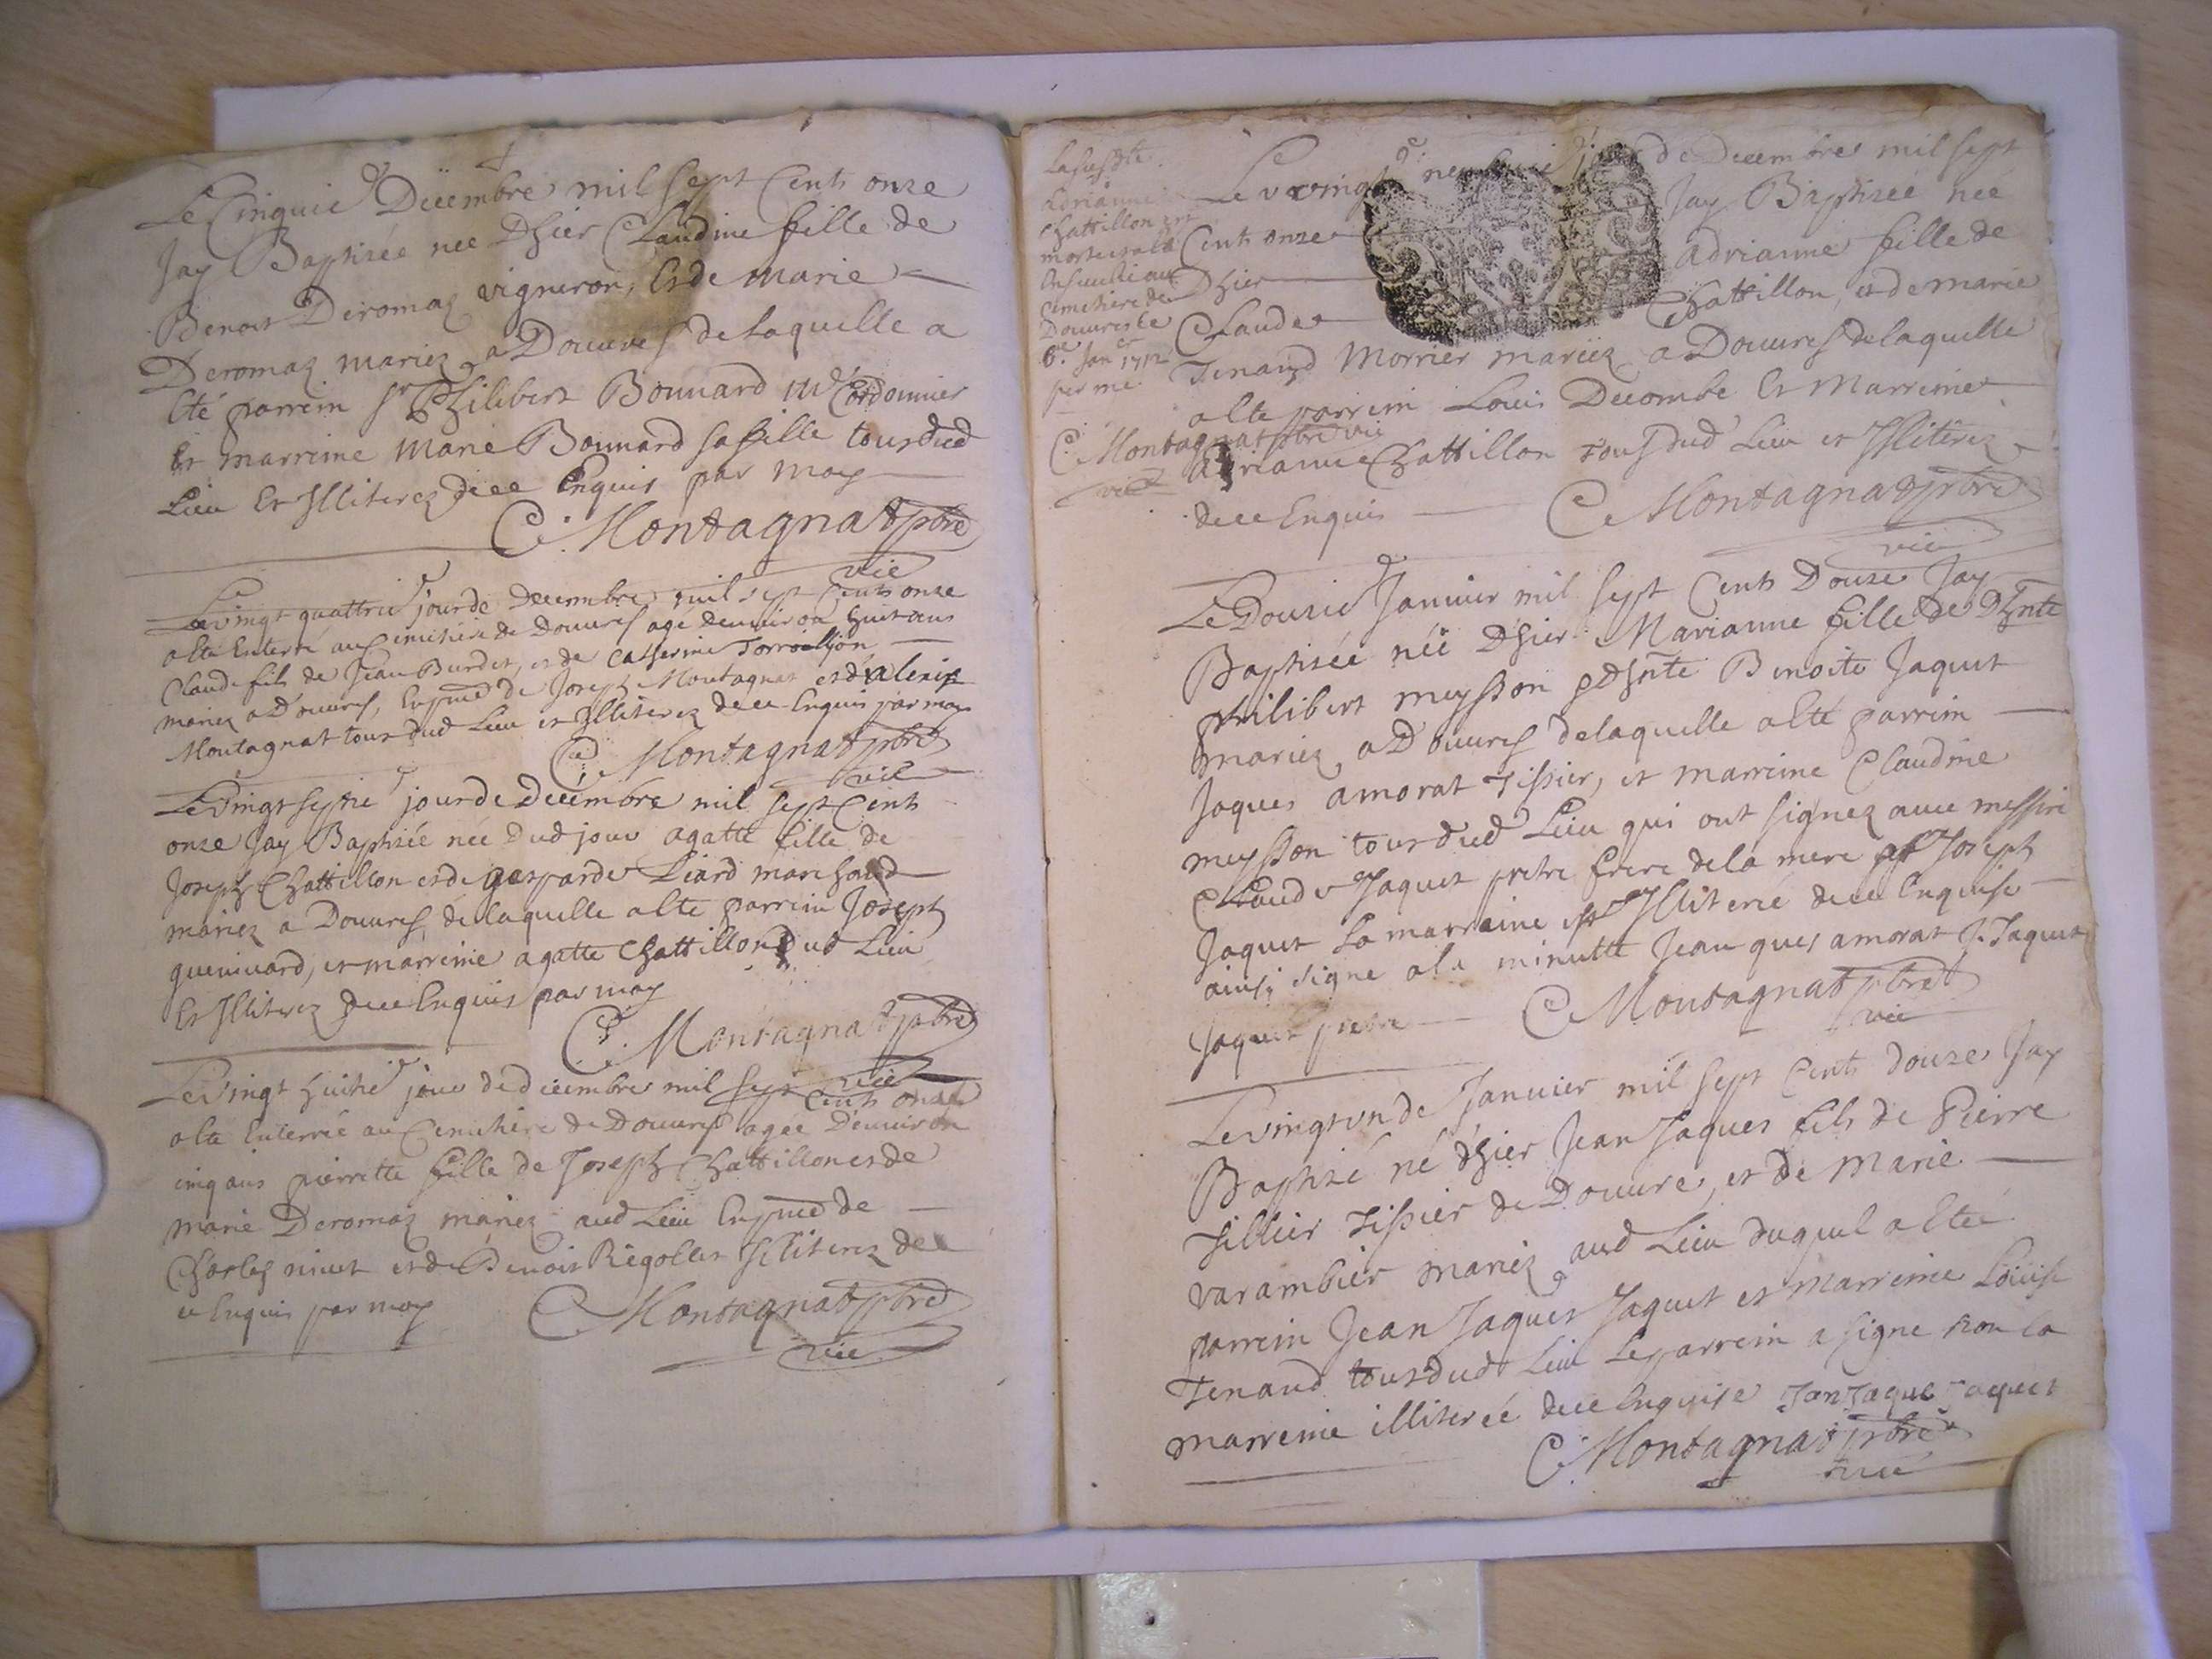 Le Cinquie Decembre mil sept Cents onze
Jay Baptisée née Dhier Claudine fille de
Benoit Deromaz vigneron, et de Marie
Deromaz mariez a Douvres de laquelle a
Eté parrein sr Philibert Bonnard Cordonnier
Et marreine Marie Bonnard sa fille tous dud
Lieu Et Illiterez de ce Enquis par moy
C. Montagnat ptre
vic
Le vingt quattrie jour de Decembre mil sept Cents onze
a Eté Enterré au Cemitiere de Douvres agé denviron huit ans
Claude fils de Jean Burdet, et de Catherine
mariez a Douvres, En pnce de Joseph Montagnat et
Montagnat tous dud Lieu et Illiterez de ce Enquis par moy
C. Montagnat ptre
vic
Le vingt septie jour de Decembre mil sept Cents
onze Jay Baptisée née dud jour agatte fille de
Joseph Chattillon et de gasparde Liard marchand
mariez a Douvres, de laquelle a Eté parrein Joseph
, et marreine agatte Chattillon dud Lieu
Et Illiterez de ce Enquis par moy
C. Montagnat ptre
vic
Le vingt huitie jour de decembre mil sept Cents onze
a Eté Enterrée au Cemitiere de Douvres agée Denviron
cinq ans pierrette fille de Joseph Chattillon et de
marie Deromaz mariez aud Lieu En pnce de
Charles et de Benoit Rigollet Illiterez de
ce Enquis par moy C. Montagnat ptre
vic
La susdte
Adrianne
Chattillon est
morte
Ensevelie au
Cimetiere de
Douvres le
6e Janer 1712
per me
C. Montagnat ptre vic
Le vingt neufvie jour de Decembre mil sept
Cents onze Jay Baptisée née
Dhier Adrianne fille de
Claude Chattillon, et de marie
Tenand mariez a Douvres de laquelle
a Eté parrein Louis Decombe Et Marreine
adrianne Chattillon tous dud Lieu et Illiterez
de ce Enquis C. Montagnat ptre
vic
Le Douzie Janvier mil sept Cents Douze Jay
Baptisée née Dhier Marianne fille de
philibert meysson Benoite Jaquet
mariez a Douvres de laquelle a Eté parrein
Jaques amorat Tissier, et marreine Claudine
meysson tous dud Lieu qui ont signez avec messire
Claude Jaquet pretre frere de la mere Joseph
Jaquet La marreine Illiterée de ce Enquise
ainsi signe a la minutte Jean ques amorat J. Jaquet
Jaquet pretre C. Montagnat ptre
vic
Le vingt un de Janvier mil sept Cents douze Jay
Baptisé né dhier Jean Jaques fils de Pierre
Tissier de Douvre, et de Marie
varambier mariez aud Lieu duquel a Eté
parrein Jean Jaques Jaquet et marreine Louise
Tenand tous dud Lieu Le parrein a signe non la
marreine illiterée de ce Enquise Jan Jaque Jaquet
C. Montagnat ptre
vic